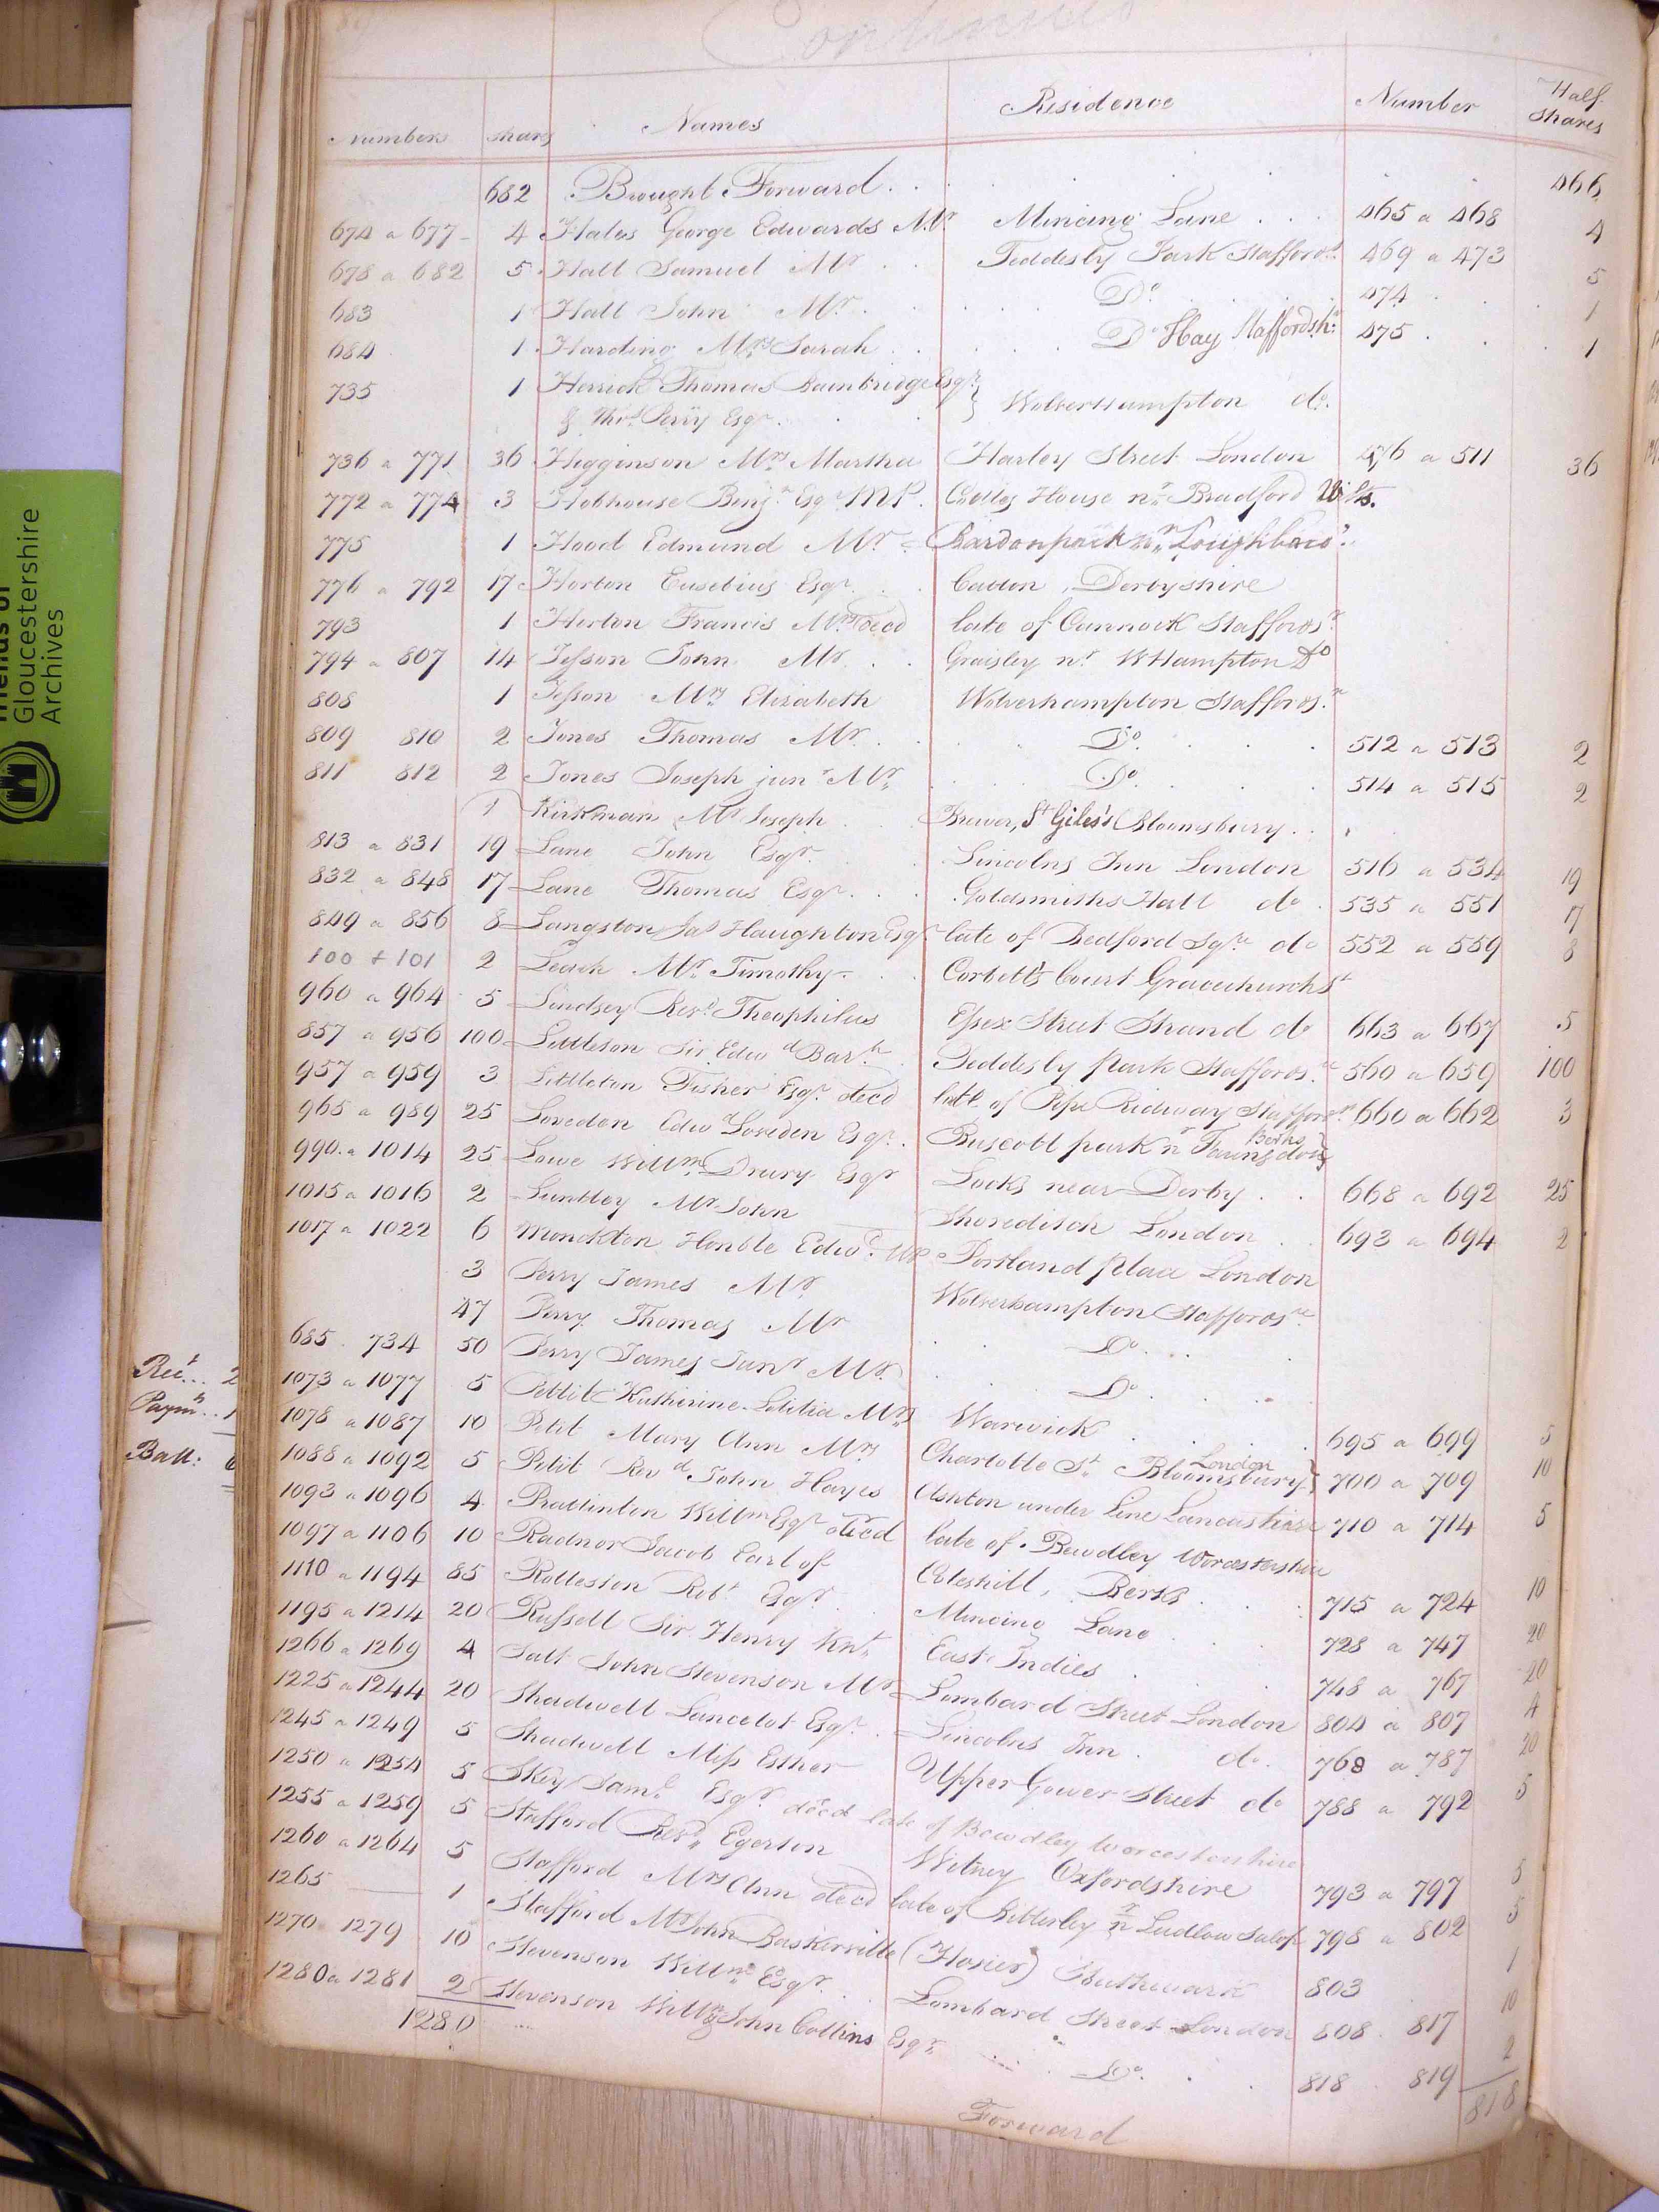 Continued
Numbers shares Names Residence Number Half Shares
682 Brought Forward . . . . . . . 466
674 a 677 4 Hales George Edwards Mr. Mincing Lane . . . 465 a 468 4
678 a 682 5 Hall Samuel Mr . . Teddesly Park Staffords. 469 a 473 5
683 1 Hall John Mr. . . . Do . . . . 474 . . 1
684 1 Harding Mrs Sarah . . . . . Do Hay Staffordsh: 475 . . . 1
735 1 Herrick Thomas Bainbridge Esqr } Wolverhampton do.
& Thos. Perry Esqr. . . .
736 a 771 36 Higginson Mrs Martha Harley Street London 476 a 511 36
772 a 774 3 Hobhouse Benjn. Esqr MP. Cottles House nr Bradford Wilts.
775 1 Hood Edmund Mr. Bardonpark nr Loughboro'.
776 a 792 17 Horton Eusebius Esqr . . Catton, Derbyshire
793 1 Horton Francis Mr decd late of Cannock Staffords.
794 a 807 14 Jesson John Mr . . Graisley nr. WHampton Do
808 1 Jesson Mrs Elizabeth Wolverhampton Staffords.
809 810 2 Jones Thomas Mr . . . . Do . . . 512 a 513 2
811 812 2 Jones Joseph junr Mr . . Do . . . 514 a 515 2
1 Kirkman Mr Joseph . . Brewer, St Giles's Bloomsbury . .
813 a 831 19 Lane John Esqr. . . Lincolns Inn London 516 a 534 19
832 a 848 17 Lane Thomas Esqr. . . . Goldsmiths Hall do . 535 a 551 17
849 a 856 8 Langston Jas Haughton Esqr late of Bedford Sqre do 552 a 559 8
100 + 101 2 Leach Mr. Timothy . . Corbetts Court Gracechurch St
960 a 964 5 Lindsey Revd. Theophilus Essex Street Strand do 663 a 667 5
857 a 956 100 Littleton Sir Edwd Bart. Teddesly park Staffords. 560 a 659 100
957 a 959 3 Littleton Fisher Esqr. decd late of Pipe Ridway Staffords. 660 a 662 3
965 a 989 25 Loveden Edwd Loveden Esqr. Buscott park nr Faringdon Berks }
990 a 1014 25 Lowe Willm Drury Esqr Locks near Derby . . 668 a 692 25
1015 a 1016 2 Luntley Mr John Shoreditch London . . 693 a 694 2
1017 a 1022 6 Monckton Honble Edwd. MP Portland place London
3 Perry James Mr. Wolverhampton Staffords.
47 Perry Thomas Mr . . Do . .
685 734 50 Perry James Junr Mr. . . Do . .
1073 a 1077 5 Pettit Katherine Letitia Mrs Warwick . . . 695 a 699 5
1078 a 1087 10 Petit Mary Ann Mrs Charlotte St. Bloomsbury London } 700 a 709 10
1088 a 1092 5 Petit Revd. John Hayes Ashton under Line Lancashire 710 a 714 5
1093 a 1096 4 Prattinton Willm Esqr decd late of Bewdley Worcestershire
1097 a 1106 10 Radnor Jacob Earl of Coleshill, Berks . . 715 a 724 10
1110 a 1194 85 Rolleston Robt Esqr. . . Mincing Lane . . 728 a 747 20
1195 a 1214 20 Russell Sir Henry Knt. East Indies . . . 748 a 767 20
1266 a 1269 4 Salt John Stevenson Mr Lombard Street London 804 a 807 4
1225 a 1244 20 Shadwell Lancelot Esqr. . Lincolns Inn . do. 768 a 787 20
1245 a 1249 5 Shadwell Miss Esther Upper Gower Street do 788 a 792 5
1250 a 1254 5 Skey Saml. Esqr. decd late of Bewdley Worcestershire
1255 a 1259 5 Stafford Revd. Egerton Witney Oxfordshire 793 a 797 5
1260 a 1264 5 Stafford Mrs Ann decd late of Bitterley nr Ludlow Salop 798 a 802 5
1265 1 Stafford Mr John Baskerville (Hosier) Southwark 803 1
1270 1279 10 Stevenson Willm Esqr. . . Lombard Street London 808 . 817 10
1280 a 1281 2 Stevenson Willm John Collins Esqr. . . Do. . . 818 . 819 2
1280 Forward 818
Rect... 2
Paymt.. 1
Ball: 6
Friends of
Gloucestershire
Archives